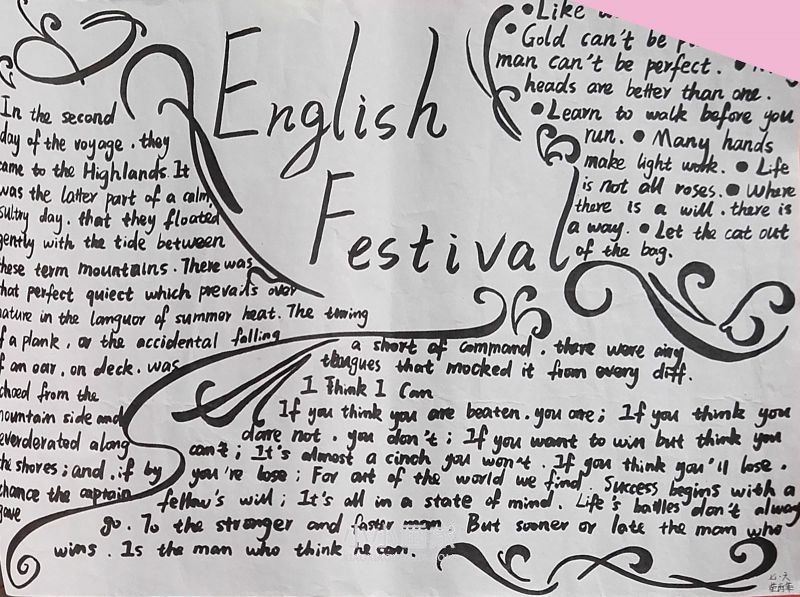 English
Festival
In the second
day of the voyage . they
ame to the Highlands. It
was the latter part of a calm,
sultry day. that they floated
gently with the tide between
these term mountains. There was
that perfect quiect which prevails over
nature in the languor of summer heat. The turing
f a plank, or the accidental falling
f an oar, on deck. was
choed from the
mountain side and
everderated along
the shores; and . if by
chance the captain
gave
a short of command . there were airy
tongues that mocked it from every diff.
• Like
• Gold can't be
man can't be perfect. •
heads are better than one.
• Learn to walk before you
run. • Many hands
make light work. • Life
is not all roses. • Where
there is a will. there is
a way. • Let the cat out
of the bag.
I Think I Can
If you think you are beaten. you are; If you think you
dare not . you don't; If you want to win but think you
can't; It's almost a cinch you won't . If you think you'll lose .
you're lose; For out of the world we find. Success begins with a
fellow's will; It's all in a state of mind. Life's battles don't alway
go. To the stronger and faster man. But sooner or late the man who
wins. Is the man who think he can.